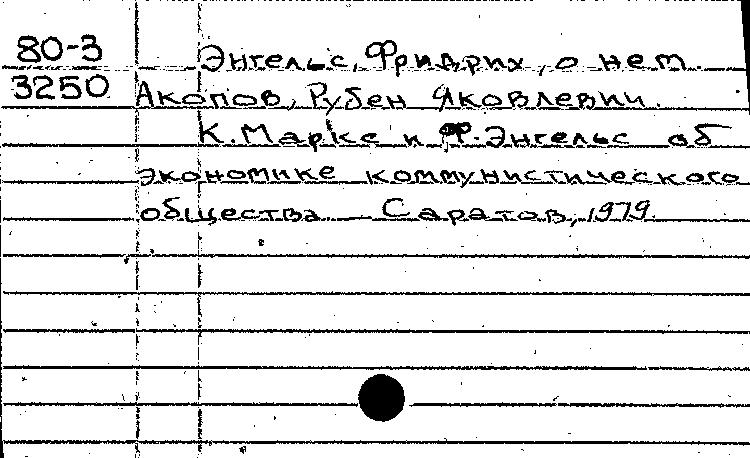 80-3 Энгельс, Фридрих, о нем.
3250 Акопов, Рубен Яковлевич.
К. Маркс и Ф. Энгельс об
экономике коммунистического
общества Саратов, 1979